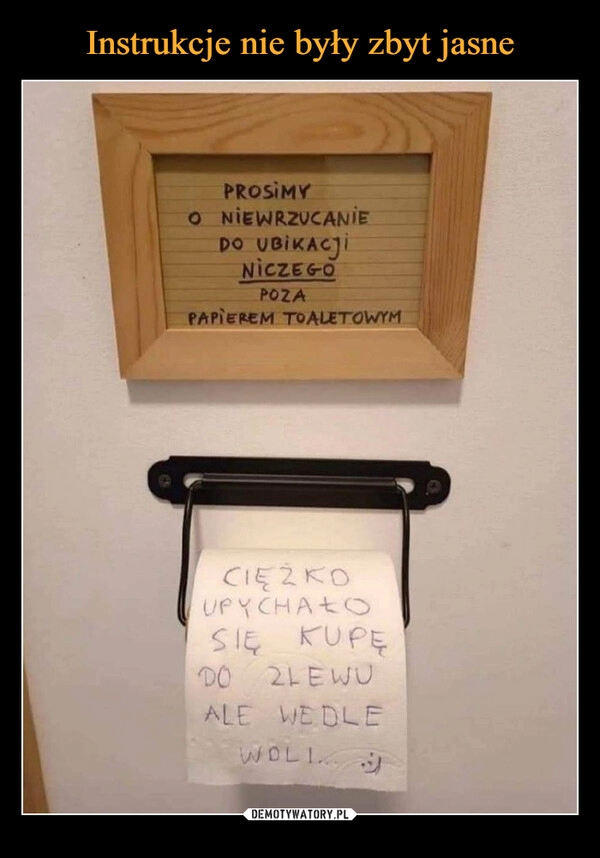 Instrukcje nie były zbyt jasne
PROSIMY
O NIEWRZUCANIE
DO UBIKACJI
NICZEGO
POZA
PAPIEREM TOALETOWYM
CIĘŻKO
UPYCHAŁO
SIĘ KUPĘ
DO ZLEWU
ALE WEDLE
WOLI... :)
DEMOTYWATORY.PL